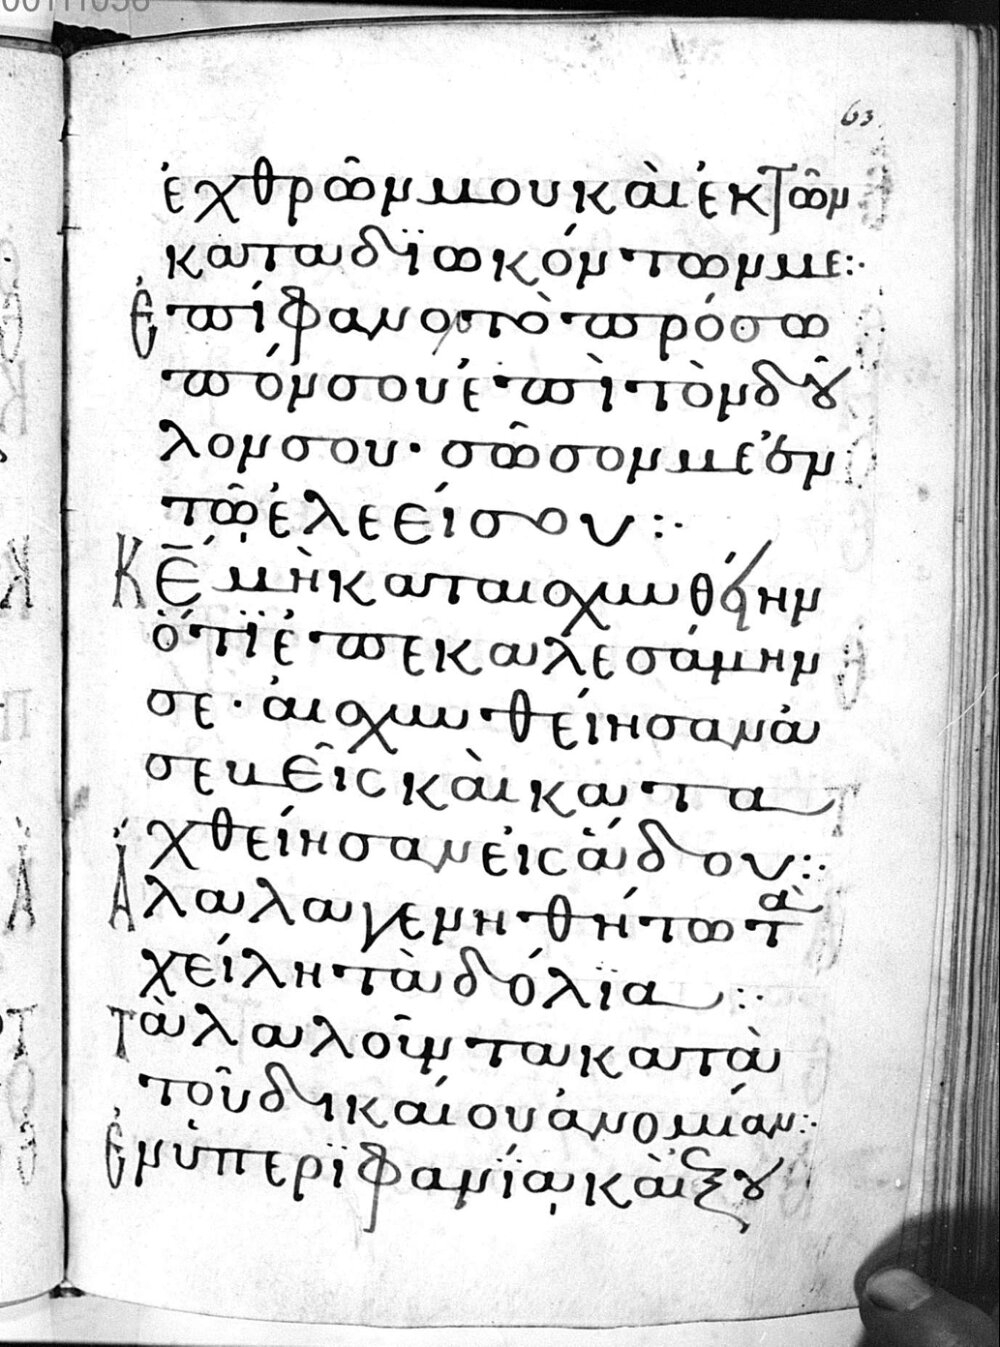 00111058
63
ἐχθρῶν μου καὶ ἐκ τῶν
καταδϊωκόντων με:·
Ἐπίφανον τὸ πρόσω
πόν σου ἐπὶ τὸν δοῦ
λον σου· σῶσόν με ἐν
τῶ ἐλέει σου:·
Κ̅Ε̅ μὴ καταισχυνθείην
ὅτϊ ἐπεκαλεσάμην
σε· ἀισχυνθείησαν ἀ
σεβεῖς καὶ κατα
χθείησαν εἰς ἅδου:·
Ἄλαλα γενηθήτω τὰ
χείλη τὰ δόλϊα:·
Τὰ λαλοῦντα κατὰ
τοῦ δικαίου ἀνομίαν:·
Ἐν ὑπερϊφανίᾳ καὶ ἐξου